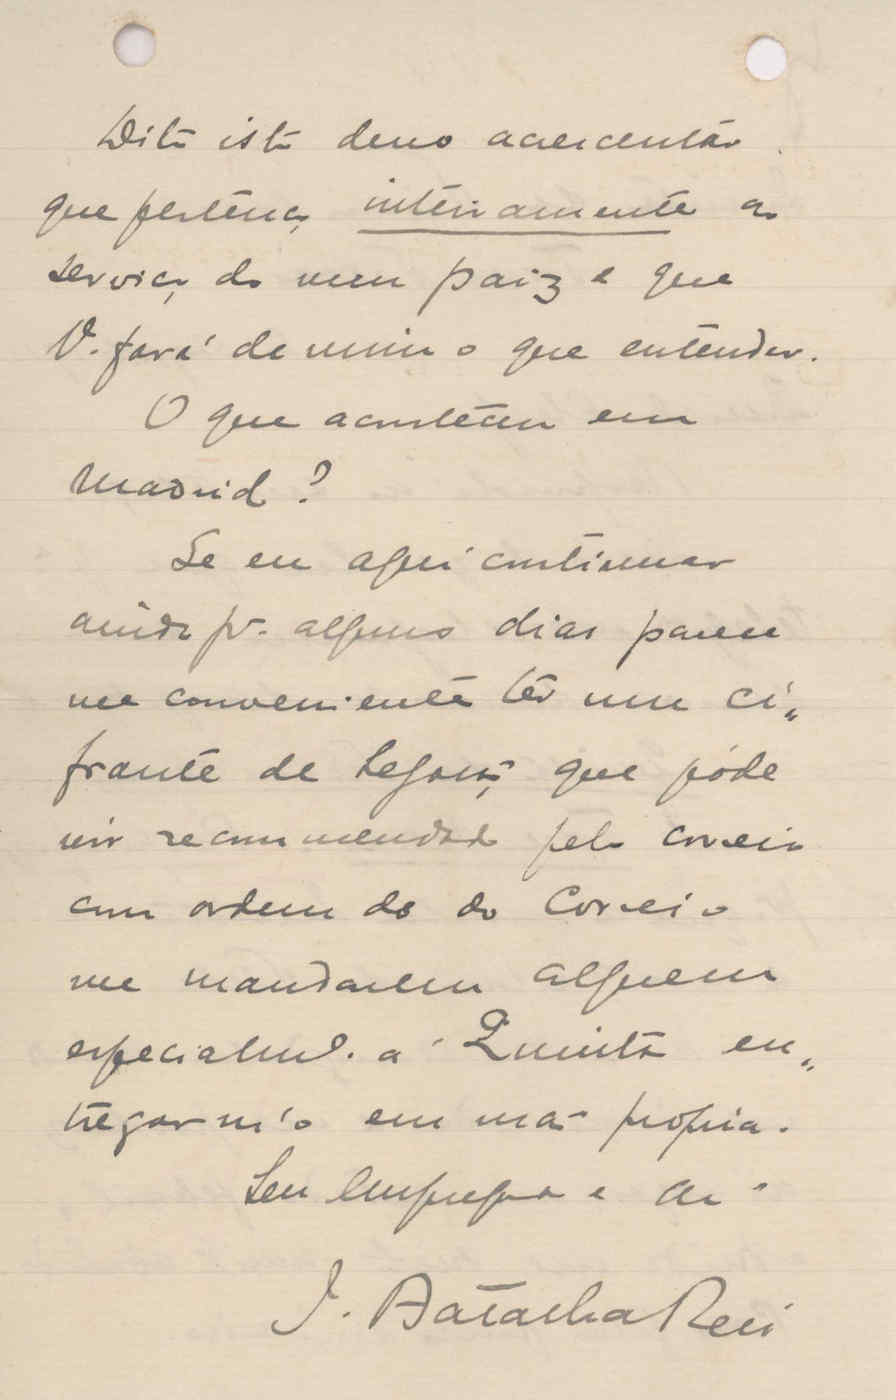 Dito isto devo acrescentar
que pertenço inteiramente ao
serviço do meu paiz e que
V. fará de mim o que entender.
O que aconteceu em
Madrid?
Se eu aqui continuar
ainda pr. alguns dias parece
me conveniente ter um ci„
frante de Legação, que póde
vir recommendado pelo correio
com ordem de do Correio
me mandarem alguem
especialme. á Quinta en„
tregar m'o em mão propria.
Seu e
J. Batalha Reis